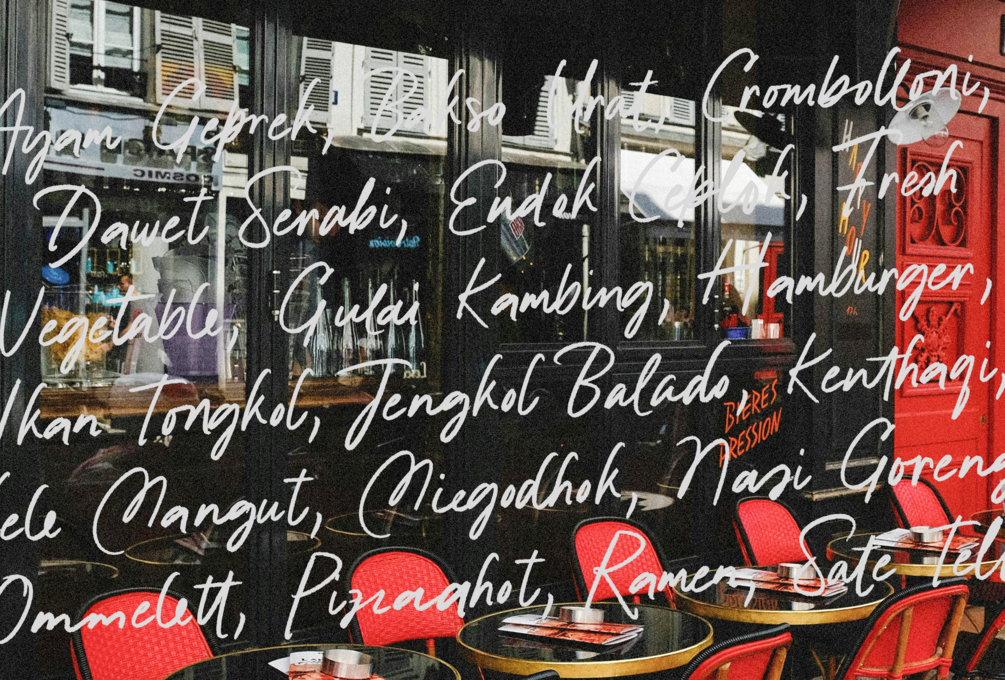 Ayam Geprek, Bakso Urat, Crombolloni,
Dawet Serabi, Endok Ceplok, Fresh
Vegetable, Gulai Kambing, Hamburger,
Ikan Tongkol, Jengkol Balado, Kenthaqi,
ele Mangut, Miegodhok, Nasi Goreng
Ommelett, Pizzaahot, Ramen, Sate Tel
COSMIC
HAPPY HOUR
BIERES
PRESSION